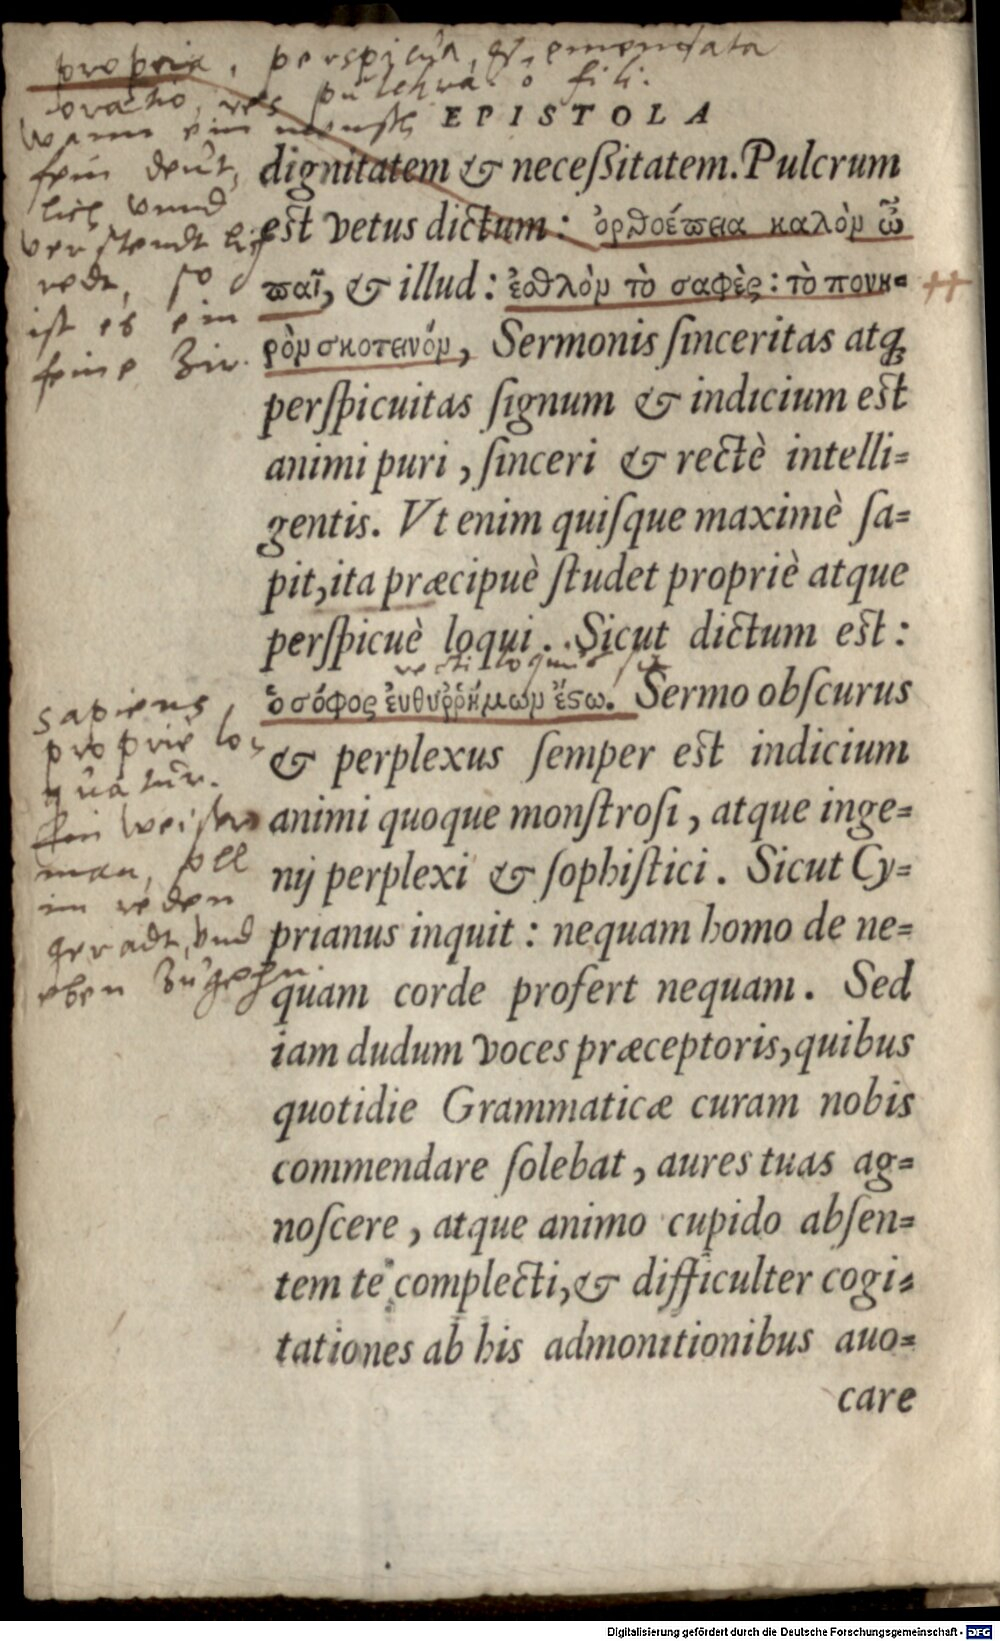 propria, perspicua, & emendata
oratio, res pulchra ô fili.
Wann ein mensch
fein deut,
lich vnnd
verstendtlich
redt, so
ist es ein
feine Zir.
EPISTOLA
dignitatem & neceßitatem. Pulcrum
est vetus dictum: ὀρθοέπεια καλὸμ ὦ
παῖ, & illud: ἐσθλὸμ τὸ σαφὲς: τὸ πονη=
ρὸμ σκοτεινόμ, Sermonis ſinceritas atq;
perſpicuitas ſignum & indicium est
animi puri, ſinceri & rectè intelli=
gentis. Vt enim quiſque maximè ſa=
pit, ita præcipuè ſtudet propriè atque
perſpicuè loqui. Sicut dictum est:
recti loquus sit
ὁ σόφος ἐυθυῤῥήμωμ ἔσω. Sermo obſcurus
& perplexus ſemper est indicium
animi quoque monſtroſi, atque inge=
nij perplexi & ſophiſtici. Sicut Cy=
prianus inquit: nequam homo de ne=
quam corde profert nequam. Sed
iam dudum voces præceptoris, quibus
quotidie Grammaticæ curam nobis
commendare ſolebat, aures tuas ag=
noſcere, atque animo cupido abſen=
tem te complecti, & difficulter cogi=
tationes ab his admonitionibus auo=
care
sapiens
proprie lo,
quatur.
Ein weiser
man, soll
im reden
geradt, vnd
eben zugehn.
Digitalisierung gefördert durch die Deutsche Forschungsgemeinschaft - DFG